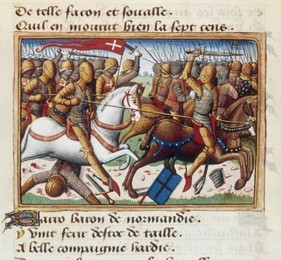 De telle facon et foualle.
Quil en mourut bien la sept cens.
baron de normandie.
y vint
de taille.
A belle compaignie hardie.